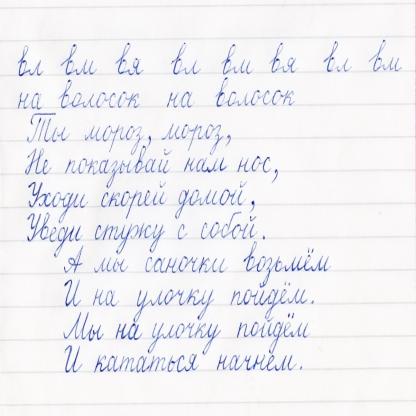 вл вм вя вл вм вя вл вм
на волосок на волосок
Ты мороз, мороз,
Не показывай нам нос,
Уходи скорей домой,
Уведи стужу с собой.
А мы саночки возьмём
И на улочку пойдём.
Мы на улочку пойдём
И кататься начнём.